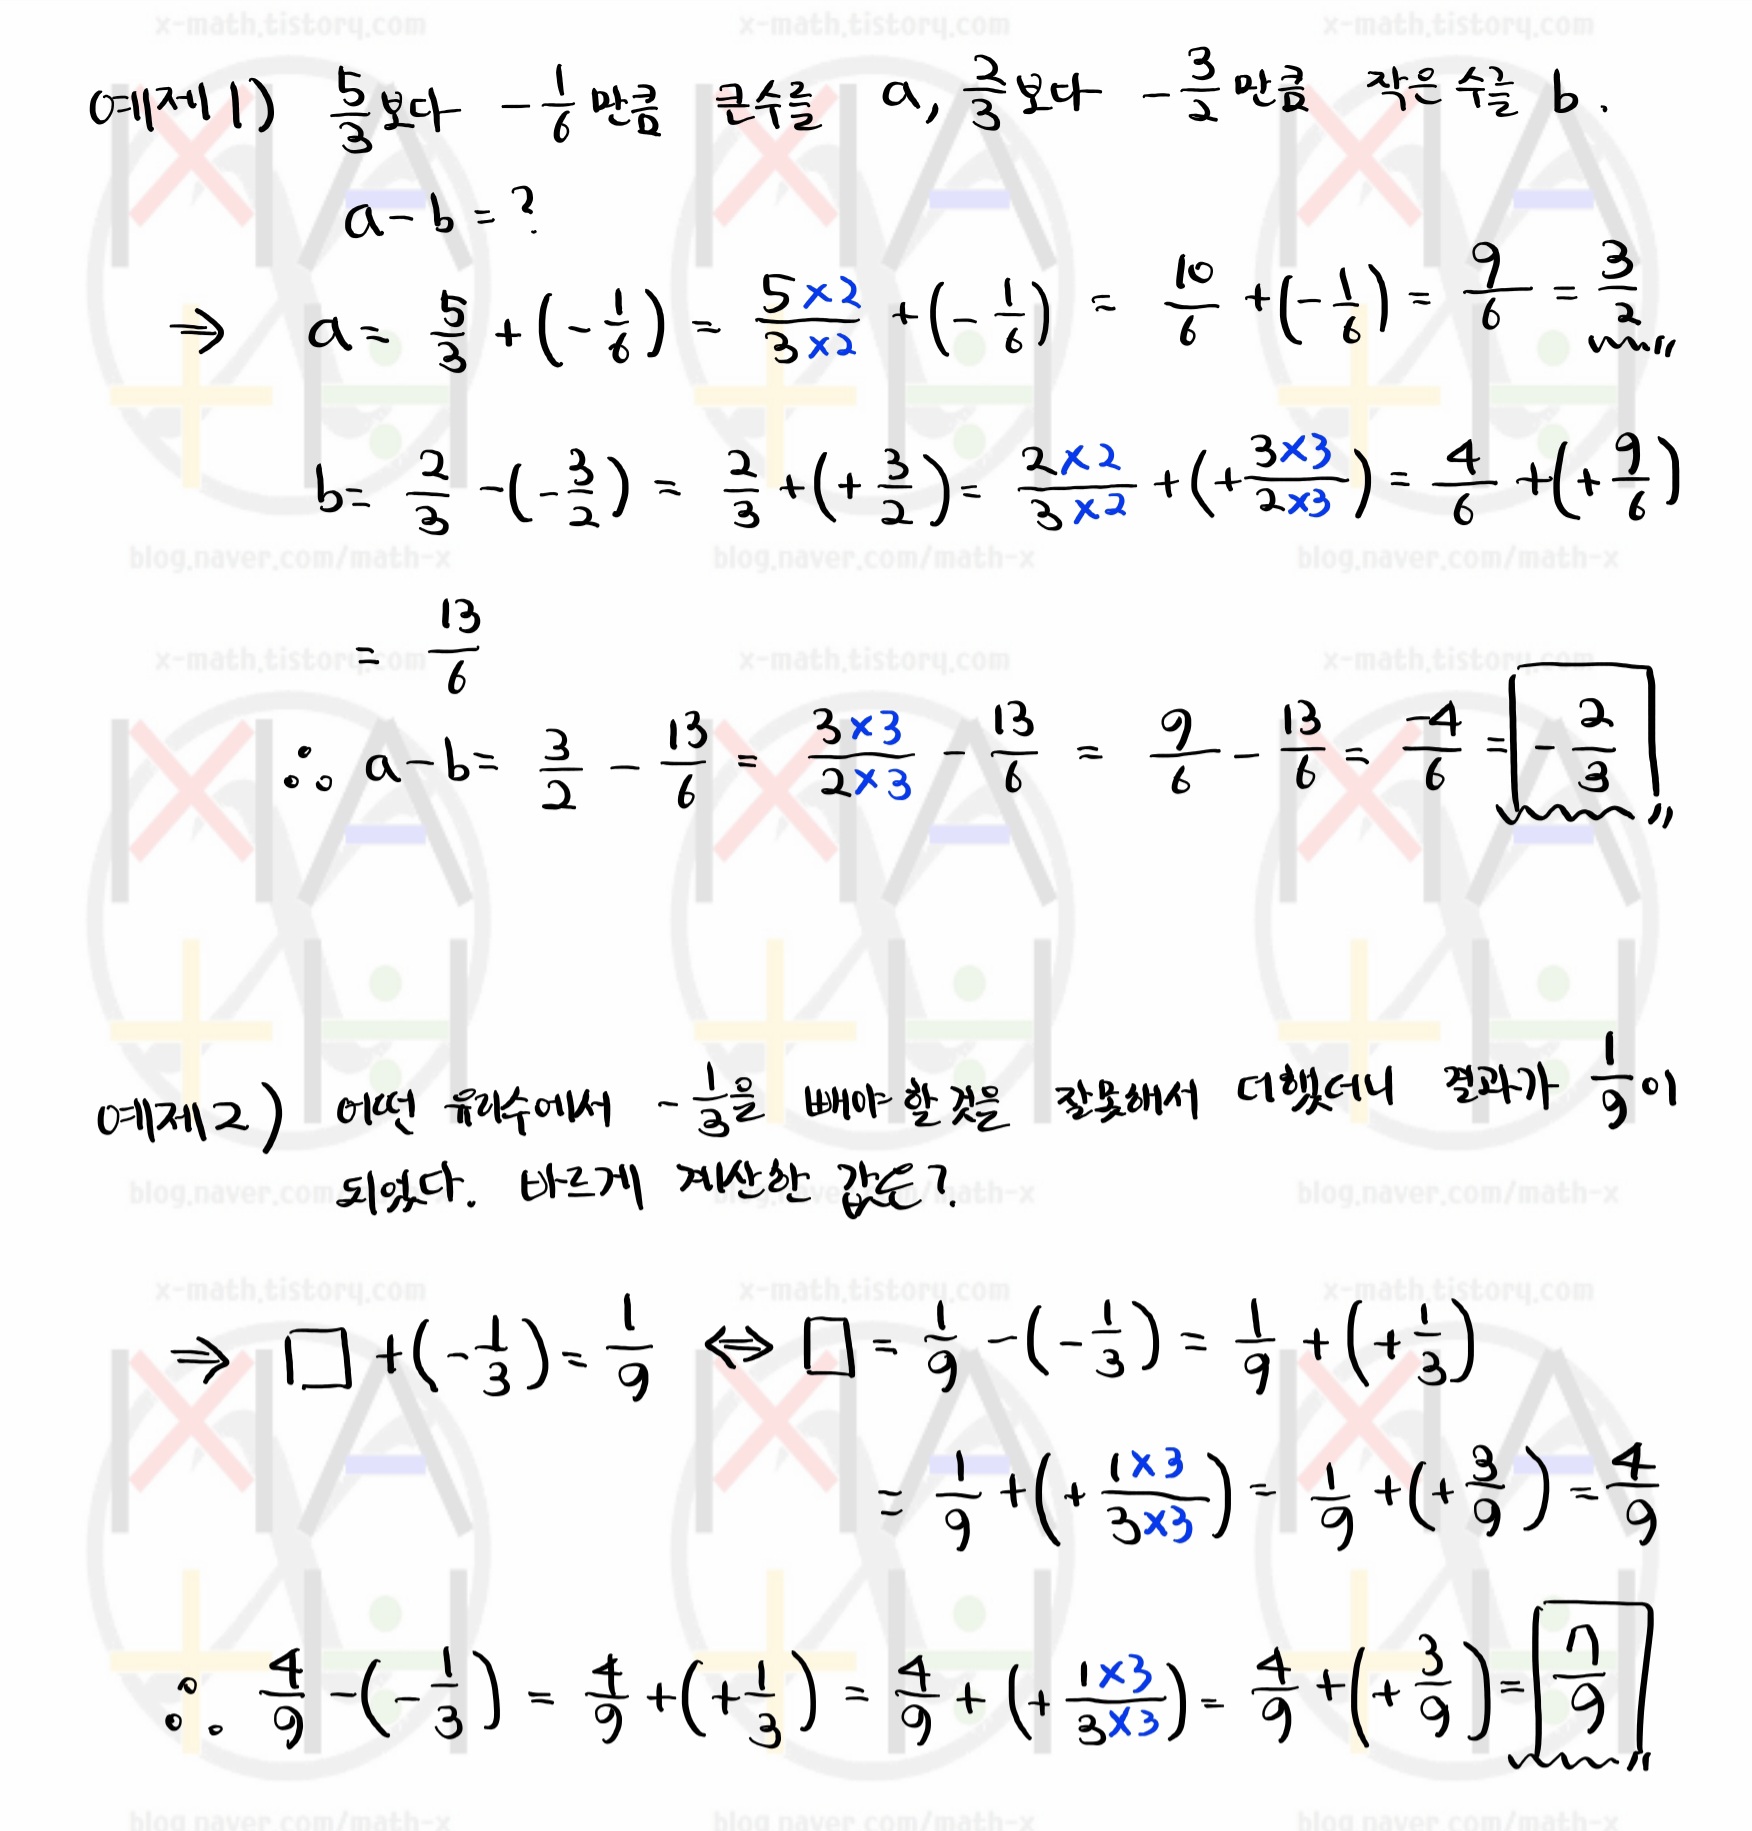 x-math.tistory.com x-math.tistory.com x-math.tistory.com
예제1) 5/3보다 -1/6만큼 큰수를 a, 2/3보다 -3/2만큼 작은 수를 b.
a-b=?
⇒ a= 5/3+(-1/6) = 5×2/3×2+(-1/6) = 10/6+(-1/6) = 9/6 = 3/2
b= 2/3-(-3/2) = 2/3+(+3/2) = 2×2/3×2+(+3×3/2×3) = 4/6+(+9/6)
blog.naver.com/math-x blog.naver.com/math-x blog.naver.com/math-x
= 13/6
x-math.tistory.com x-math.tistory.com x-math.tistory.com
∴ a-b= 3/2 - 13/6 = 3×3/2×3 - 13/6 = 9/6 - 13/6 = -4/6 = -2/3
예제2) 어떤 유리수에서 -1/3을 빼야 할 것을 잘못해서 더했더니 결과가 1/9이
되었다. 바르게 계산한 값은?
blog.naver.com/math-x blog.naver.com/math-x blog.naver.com/math-x
x-math.tistory.com x-math.tistory.com x-math.tistory.com
⇒ □+(-1/3)=1/9 ⇔ □=1/9-(-1/3)=1/9+(+1/3)
=1/9+(+1×3/3×3)=1/9+(+3/9)=4/9
∴ 4/9-(-1/3)=4/9+(+1/3)=4/9+(+1×3/3×3)=4/9+(+3/9)=7/9
blog.naver.com/math-x blog.naver.com/math-x blog.naver.com/math-x